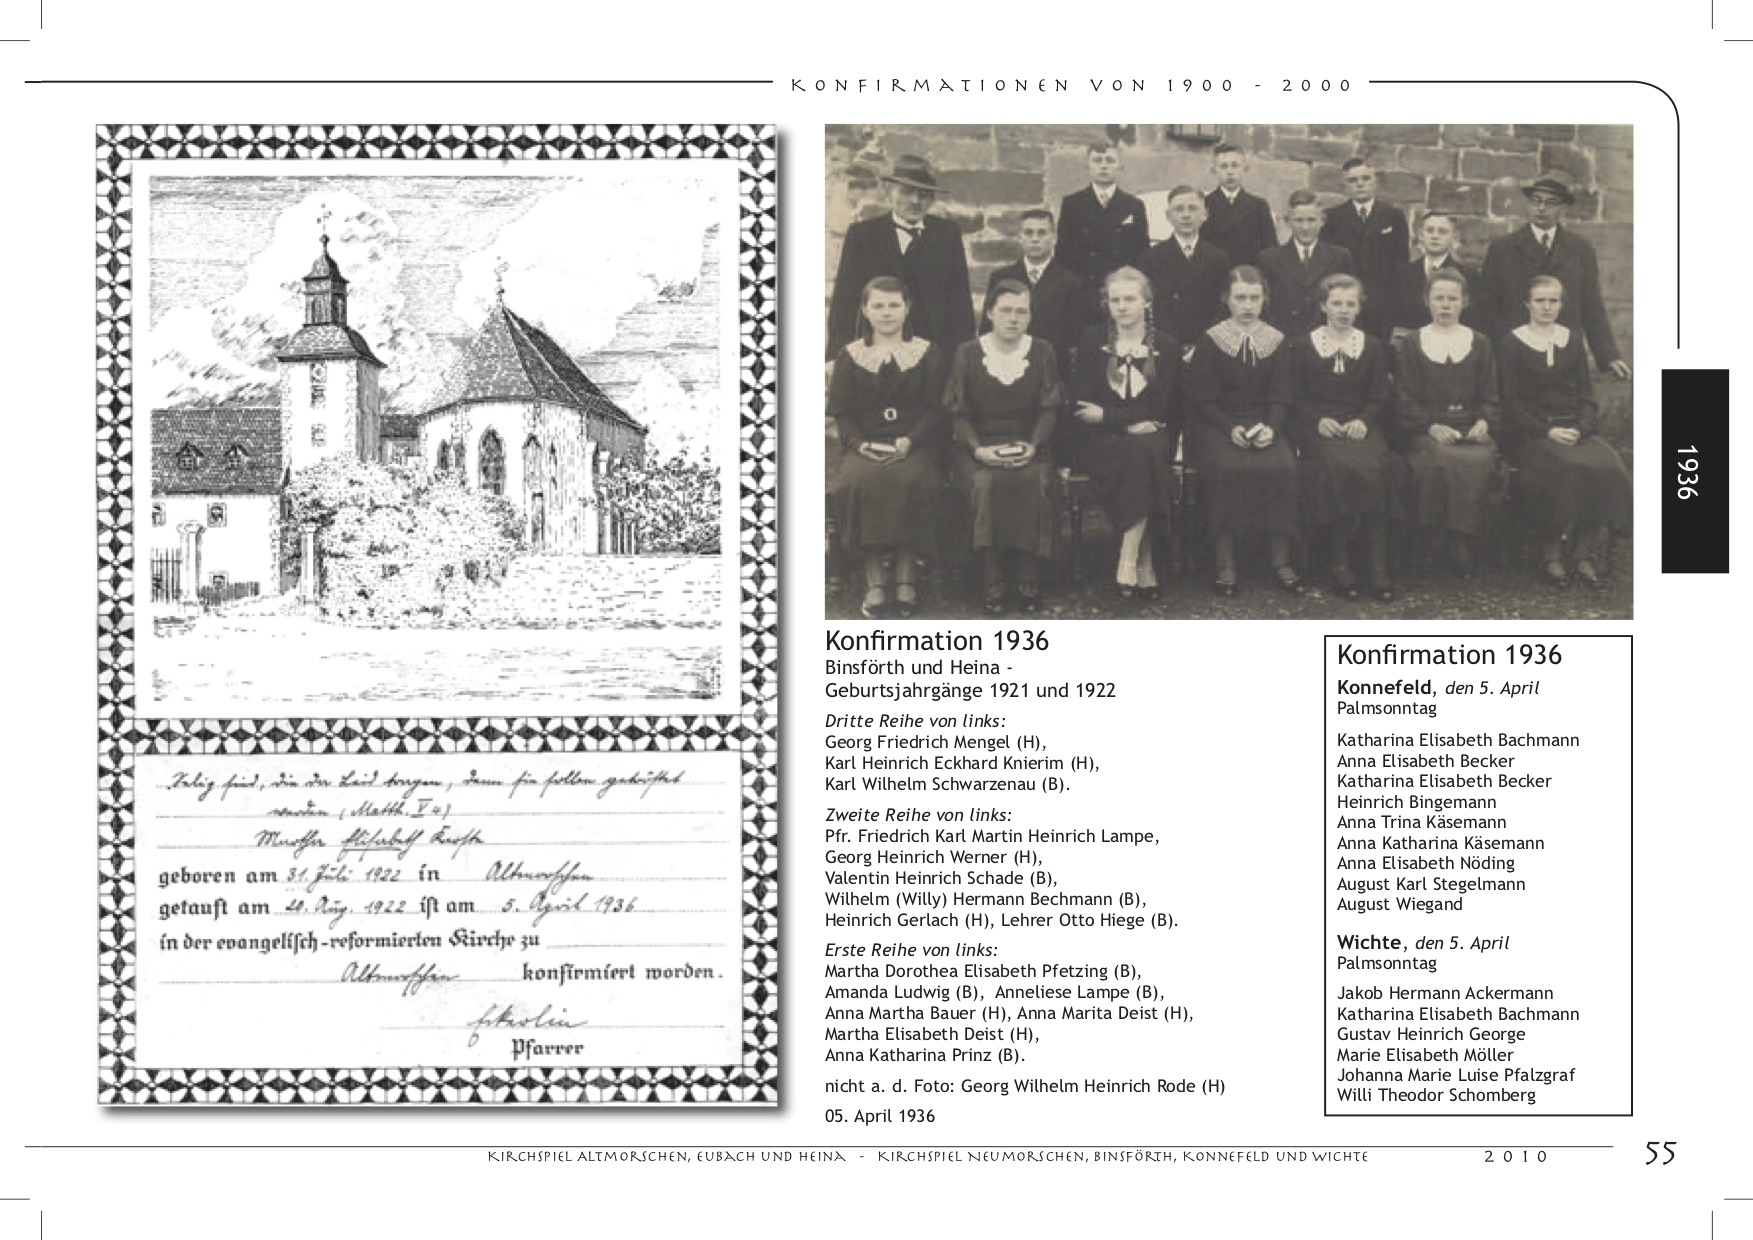 Konfirmationen von 1900 - 2000
Selig sind, die da Leid tragen, denn sie sollen getröstet
werden (Matth. V 4)
Martha Elisabeth
geboren am 31. Juli 1922 in Altmorschen
getauft am 20. Aug. 1922 ist am 5. April 1936
in der evangelisch-reformierten Kirche zu
Altmorschen konfirmiert worden.
Pfarrer
Konfirmation 1936
Binsförth und Heina -
Geburtsjahrgänge 1921 und 1922
Dritte Reihe von links:
Georg Friedrich Mengel (H),
Karl Heinrich Eckhard Knierim (H),
Karl Wilhelm Schwarzenau (B).
Zweite Reihe von links:
Pfr. Friedrich Karl Martin Heinrich Lampe,
Georg Heinrich Werner (H),
Valentin Heinrich Schade (B),
Wilhelm (Willy) Hermann Bechmann (B),
Heinrich Gerlach (H), Lehrer Otto Hiege (B).
Erste Reihe von links:
Martha Dorothea Elisabeth Pfetzing (B),
Amanda Ludwig (B), Anneliese Lampe (B),
Anna Martha Bauer (H), Anna Marita Deist (H),
Martha Elisabeth Deist (H),
Anna Katharina Prinz (B).
nicht a. d. Foto: Georg Wilhelm Heinrich Rode (H)
05. April 1936
Konfirmation 1936
Konnefeld, den 5. April
Palmsonntag
Katharina Elisabeth Bachmann
Anna Elisabeth Becker
Katharina Elisabeth Becker
Heinrich Bingemann
Anna Trina Käsemann
Anna Katharina Käsemann
Anna Elisabeth Nöding
August Karl Stegelmann
August Wiegand
Wichte, den 5. April
Palmsonntag
Jakob Hermann Ackermann
Katharina Elisabeth Bachmann
Gustav Heinrich George
Marie Elisabeth Möller
Johanna Marie Luise Pfalzgraf
Willi Theodor Schomberg
1936
Kirchspiel Altmorschen, Eubach und Heina - Kirchspiel Neumorschen, Binsförth, Konnefeld und Wichte
2010
55